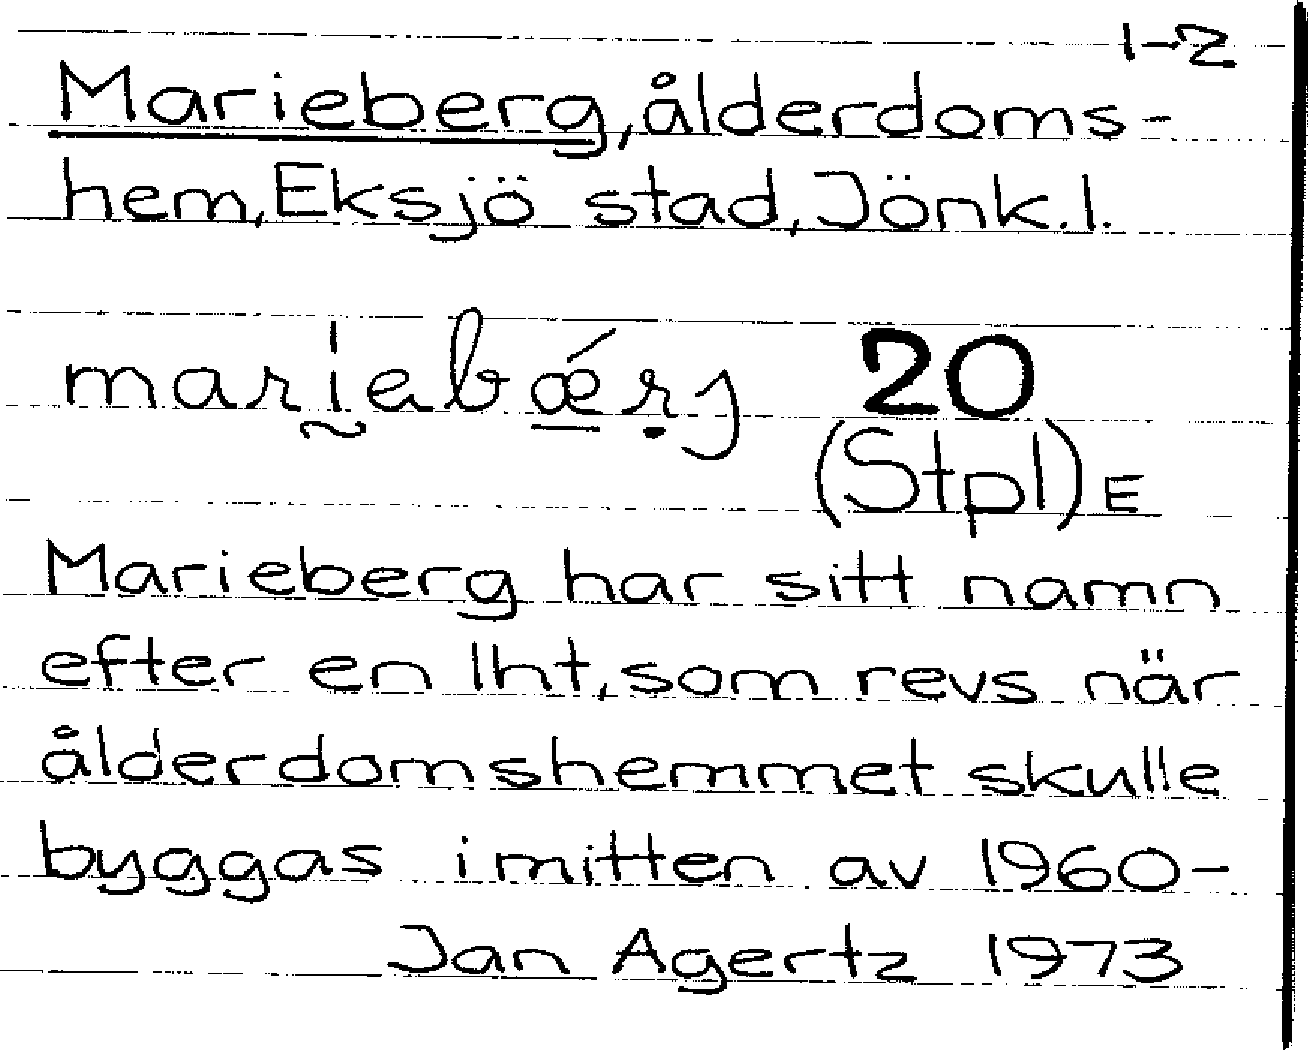 1-2
Marieberg, ålderdoms-
hem, Eksjö stad, Jönk.l.
marḭabǽ̠ṛj 20
(Stpl) E
Marieberg har sitt namn
efter en lht, som revs när
ålderdomshemmet skulle
byggas i mitten av 1960-
Jan Agertz 1973